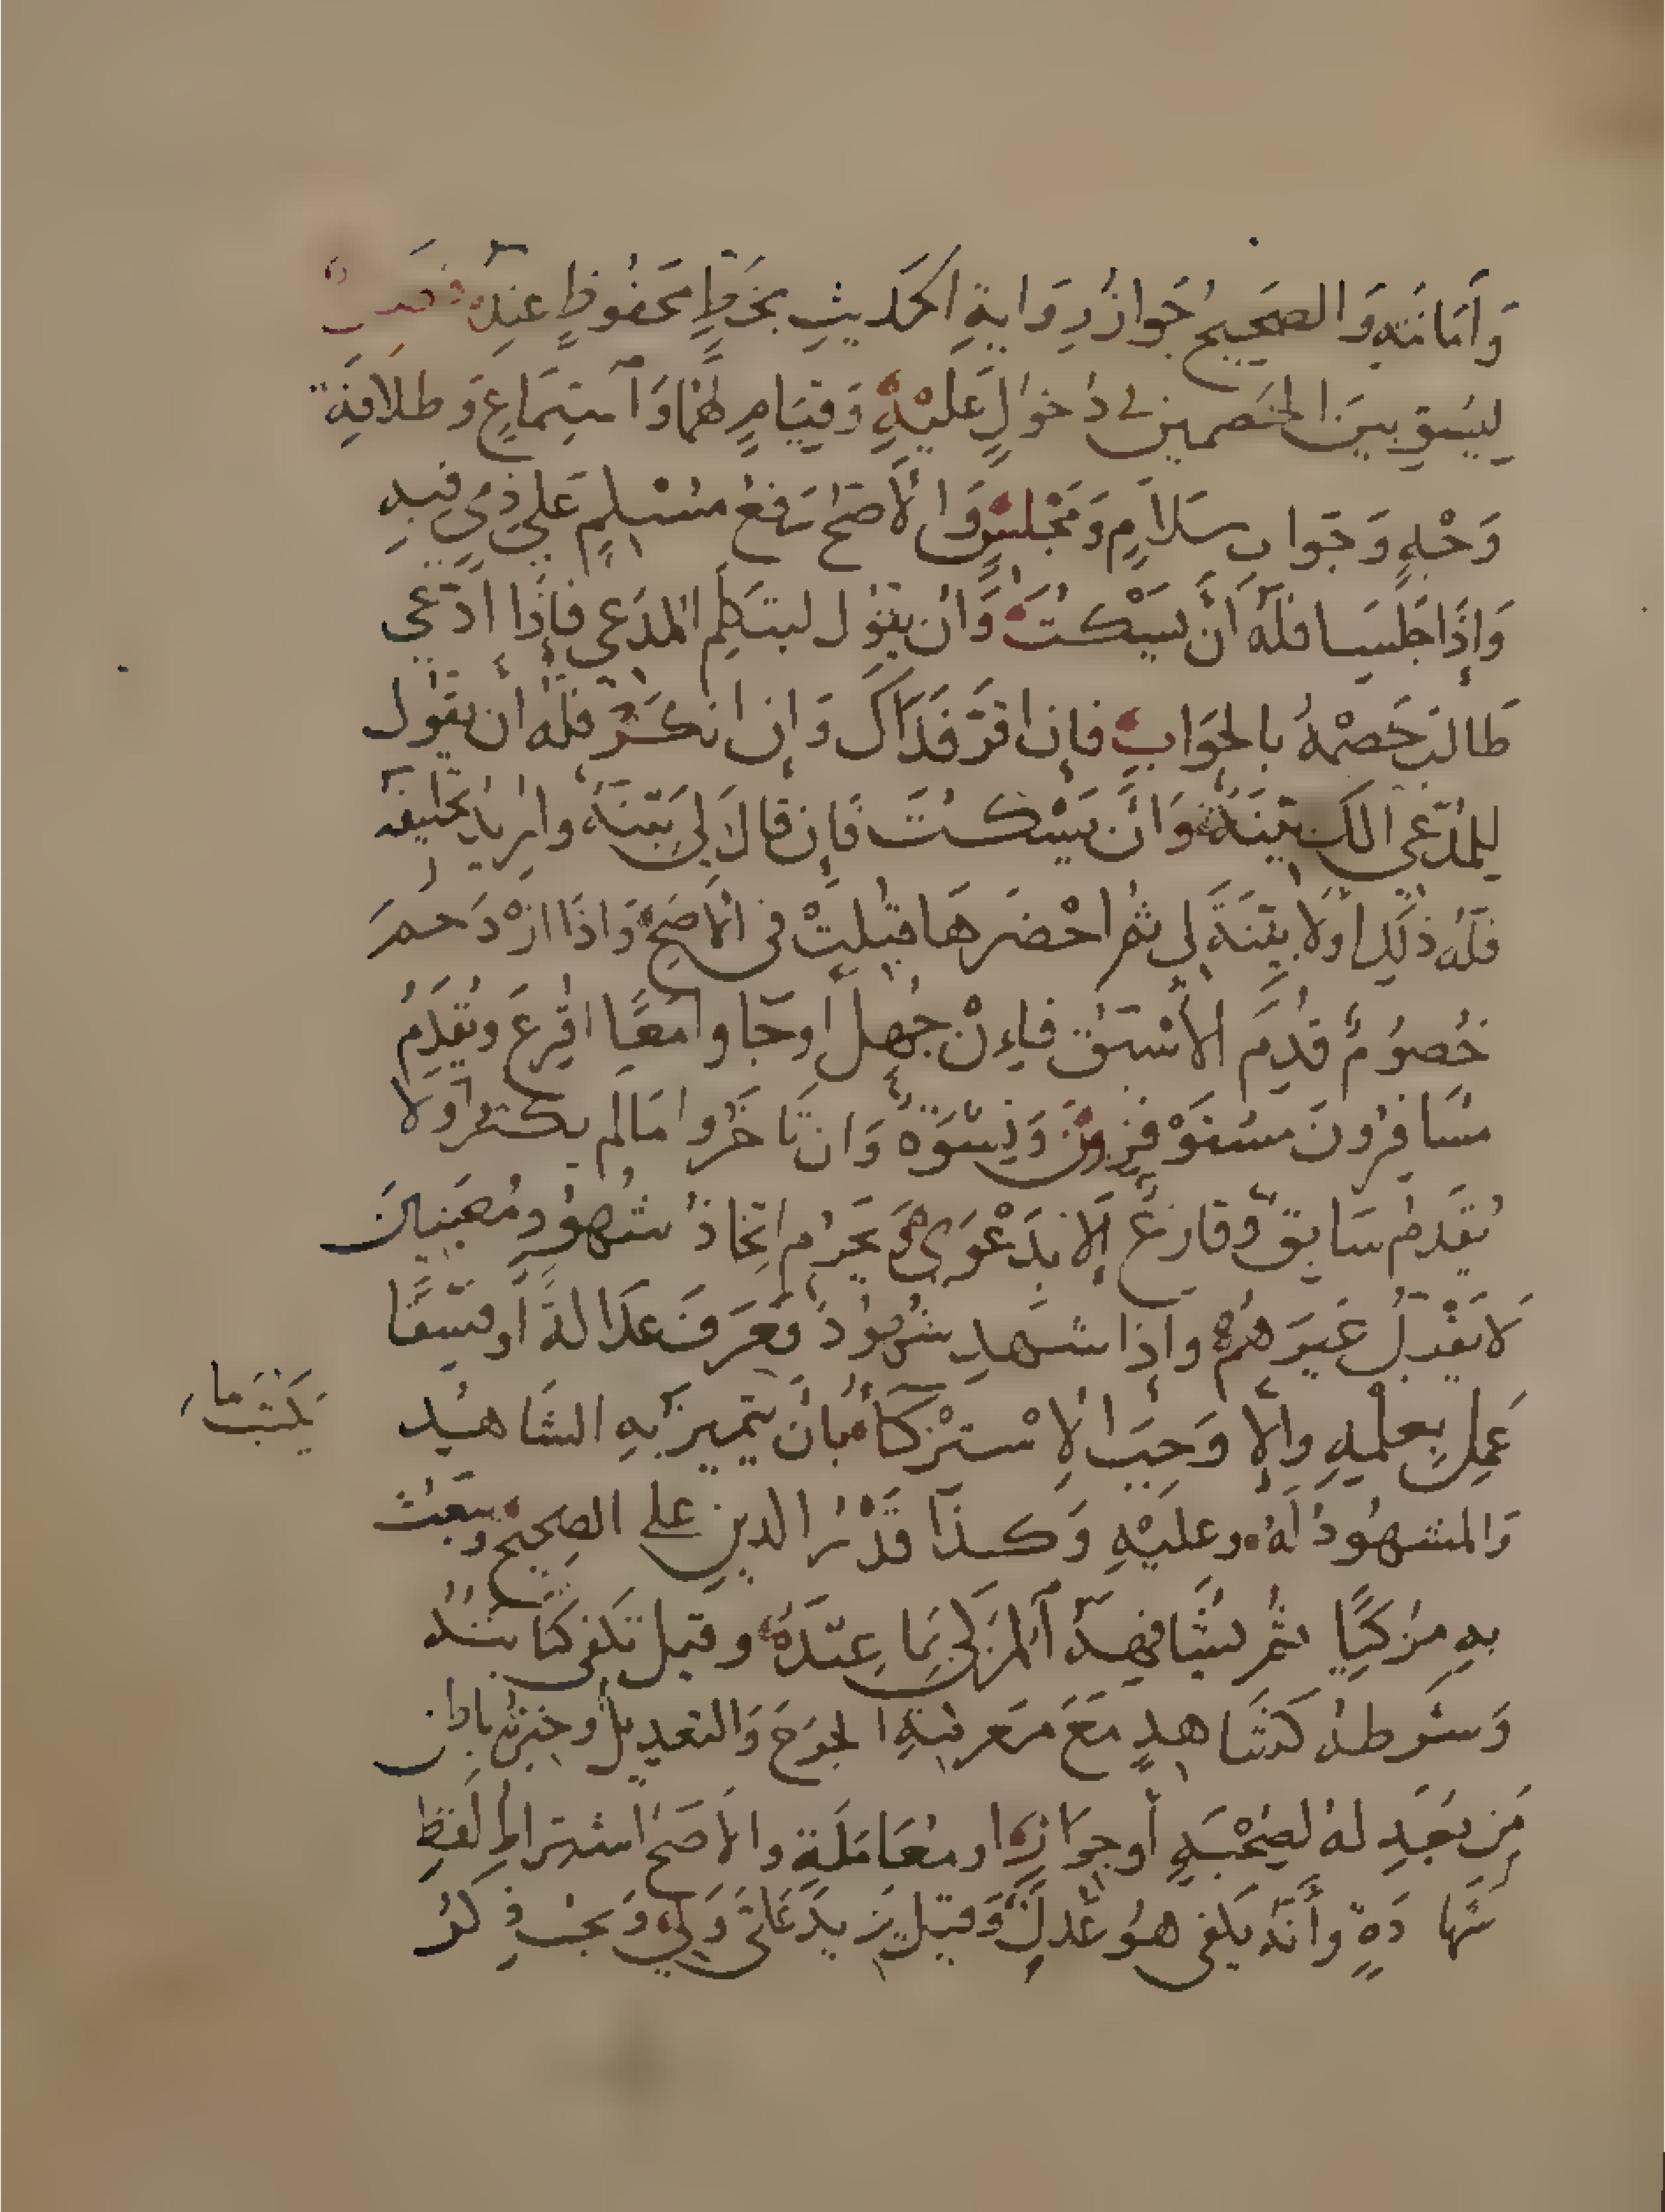 وَأَمَانَتِهِ وَالصَّحِيحُ جَوَازُ رِوَايَةِ الْحَدِيثِ بِخَطٍّ مَحْفُوظٍ عِنْدَهُ فصل
لِيُسَوِّ بَيْنَ الْخَصْمَيْنِ فِي دُخُولٍ عَلَيْهِ وَقِيَامٍ لَهُمَا وَاسْتِمَاعٍ وَطَلَاقَةِ
وَجْهٍ وَجَوَابِ سَلَامٍ وَمَجْلِسٍ وَالْأَصَحُّ رَفْعُ مُسْلِمٍ عَلَى ذِمِّيٍّ فِيهِ
وَإِذَا جَلَسَا فَلَهُ أَنْ يَسْكُتَ وَأَنْ يَقُولَ لِيَتَكَلَّمِ الْمُدَّعِي فَإِذَا ادَّعَى
طَالَبَ خَصْمَهُ بِالْجَوَابِ فَإِنْ أَقَرَّ فَذَاكَ وَإِنْ أَنْكَرَ فَلَهُ أَنْ يَقُولَ
لِلْمُدَّعِي أَلَكَ بَيِّنَةٌ وَأَنْ يَسْكُتَ فَإِنْ قَالَ لِي بَيِّنَةٌ وَأُرِيدُ تَحْلِيفَهُ
فَلَهُ ذَلِكَ أَوْ لَا بَيِّنَةَ لِي ثُمَّ أَحْضَرَهَا قُبِلَتْ فِي الْأَصَحِّ وَإِذَا ازْدَحَمَ
خُصُومٌ قُدِّمَ الْأَسْبَقُ فَإِنْ جُهِلَ أَوْ جَاءُوا مَعًا أُقْرِعَ وَيُقَدَّمُ
مُسَافِرُونَ مُسْتَوْفِزُونَ وَنِسْوَةٌ وَإِنْ تَأَخَّرُوا مَا لَمْ يَكْثُرُوا وَلَا
يُقَدَّمُ سَابِقٌ وَقَارِعٌ إِلَّا بِدَعْوَى وَيَحْرُمُ اتِّخَاذُ شُهُودٍ مُعَيَّنِينَ
لَا يَقْبَلُ غَيْرَهُمْ وَإِذَا شَهِدَ شُهُودٌ فَعَرَفَ عَدَالَةً أَوْ فِسْقًا
عَمِلَ بِعِلْمِهِ وَإِلَّا وَجَبَ الِاسْتِزْكَاءُ بِأَنْ يَتَمَيَّزُ بِهِ الشَّاهِدُ
يَكْتُبَ مَا
وَالْمَشْهُودُ لَهُ وَعَلَيْهِ وَكَذَا قَدْرُ الدَّيْنِ عَلَى الصَّحِيحِ وَيَبْعَثُ
بِهِ مُزَكِّيًا ثُمَّ يُشَافِهُهُ الْمُزَكِّي بِمَا عِنْدَهُ وَقِيلَ تَكْفِي كِتَابَتُهُ
وَشَرْطُهُ كَشَاهِدٍ مَعَ مَعْرِفَةِ الْجَرْحِ وَالتَّعْدِيلِ وَخِبْرَةِ بَاطِنِ
مَنْ يُعَدِّلُهُ لِصُحْبَةٍ أَوْ جِوَارٍ أَوْ مُعَامَلَةٍ وَالْأَصَحُّ اشْتِرَاطُ لَفْظِ
شَهَادَةٍ وَأَنَّهُ يَكْفِي هُوَ عَدْلٌ وَقِيلَ يَزِيدُ عَلَيَّ وَلِي وَيَجِبُ ذِكْرُ